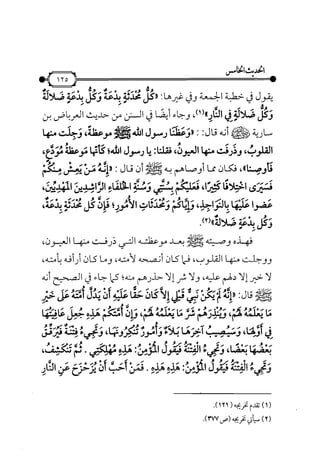 الحديث الخامس
١٢٥
يقول في خطبة الجمعة وفي غيرها: «كُلُّ مُحْدَثَةٍ بِدْعَةٌ وَكُلُّ بِدْعَةٍ ضَلَالَةٌ
وَكُلُّ ضَلَالَةٍ فِي النَّارِ»(١)، وجاء أيضًا في السنن من حديث العرباض بن
سارية أنه قال: : «وَعَظَنَا رسول الله ﷺ موعظة، وَجِلَت منها
القلوبُ، وذَرَفَت منها العيونُ، فقلنا: يا رسول الله؛ كأنّها مَوعِظَةُ مُوَدِّعٍ،
فأوصنا»، فكان مما أوصاهم به ﷺ أن قال: «إِنَّهُ مَنْ يَعِشْ مِنْكُمْ
فَسَيَرَى اخْتِلَافًا كَثِيرًا، فَعَلَيْكُمْ بِسُنَّتِي وَسُنَّةِ الْخُلَفَاءِ الرَّاشِدِينَ الْمَهْدِيِّينَ،
عَضُّوا عَلَيْهَا بِالنَّوَاجِذِ، وَإِيَّاكُمْ وَمُحْدَثَاتِ الْأُمُورِ؛ فَإِنَّ كُلَّ مُحْدَثَةٍ بِدْعَةٌ،
وَكُلَّ بِدْعَةٍ ضَلَالَةٌ»(٢).
فهذه وصيته ﷺ بعد موعظته التي ذرفت منها العيون،
ووجلت منها القلوب، فما كان أنصحه لأمته، وما كان أرأفه بأمته،
لا خير إلا دلهم عليه، ولا شر إلا حذرهم منه؛ كما جاء في الصحيح أنه
ﷺ قال: «إِنَّهُ لَمْ يَكُنْ نَبِيٌّ قَبْلِي إِلَّا كَانَ حَقًّا عَلَيْهِ أَنْ يَدُلَّ أُمَّتَهُ عَلَى خَيْرِ
مَا يَعْلَمُهُ لَهُمْ، وَيُنْذِرَهُمْ شَرَّ مَا يَعْلَمُهُ لَهُمْ، وَإِنَّ أُمَّتَكُمْ هَذِهِ جُعِلَ عَافِيَتُهَا
فِي أَوَّلِهَا، وَسَيُصِيبُ آخِرَهَا بَلَاءٌ وَأُمُورٌ تُنْكِرُونَهَا، وَتَجِيءُ فِتْنَةٌ فَيُرَقِّقُ
بَعْضُهَا بَعْضًا، وَتَجِيءُ الْفِتْنَةُ فَيَقُولُ الْمُؤْمِنُ: هَذِهِ مُهْلِكَتِي. ثُمَّ تَنْكَشِفُ،
وَتَجِيءُ الْفِتْنَةُ فَيَقُولُ الْمُؤْمِنُ: هَذِهِ هَذِهِ. فَمَنْ أَحَبَّ أَنْ يُزَحْزَحَ عَنِ النَّارِ
(١) تقدم تخريجه (١٢١).
(٢) سيأتي تخريجه (ص ٣٧٧).